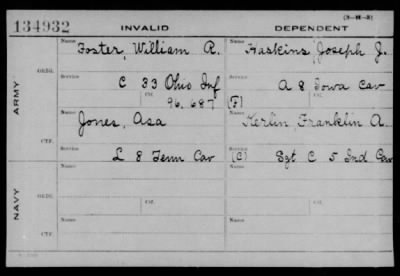 (3-14-3)
134932 INVALID DEPENDENT
Name Foster, William R. Name Haskins, Joseph J.
ORIG. Service C 33 Ohio Inf Service A 8 Iowa Cav
Ctf. 96,687 (F) Ctf.
ARMY
Name Jones, Asa Name Kerlin, Franklin A.
CTF. Service L 8 Tenn Cav Service (C) Sgt C 5 Ind Cav
Name Name
ORIG. Service Ctf. Service Ctf.
NAVY
Name Name
CTF. Service Service